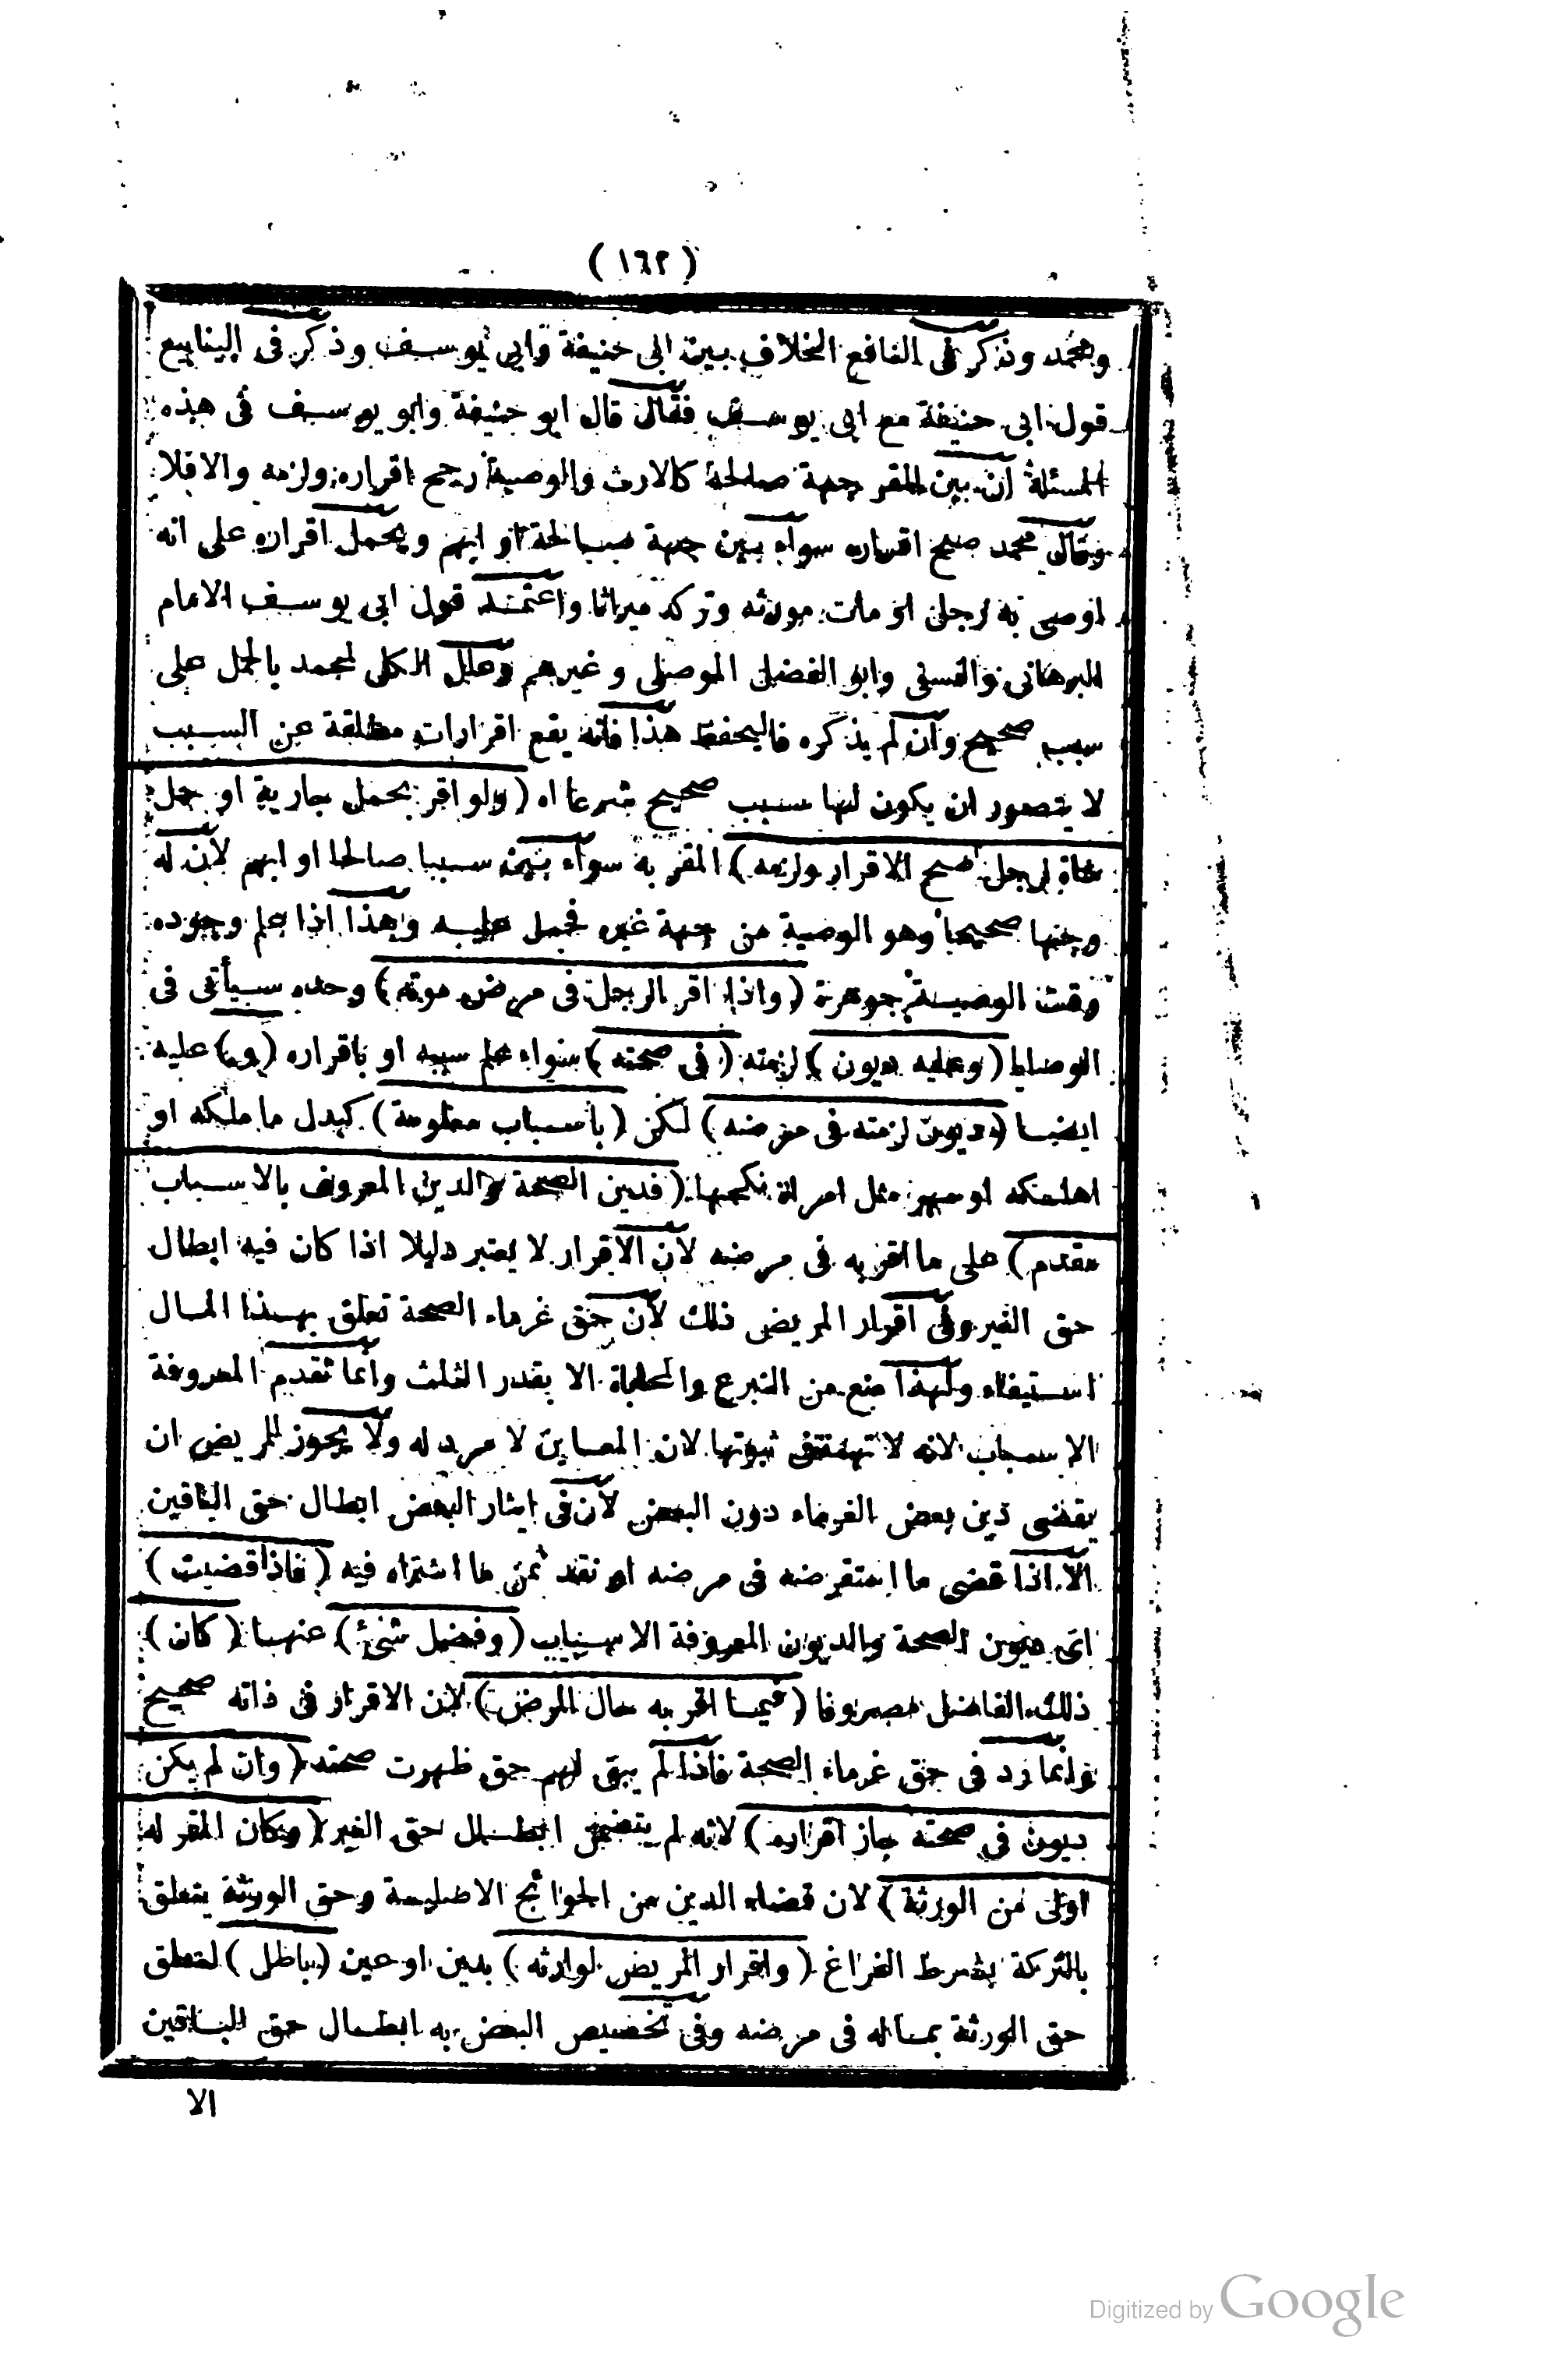 (١٦٢)
ومحمد وذكر فى النافع الخلاف بين ابى حنيفة وابى يوسف وذكر فى الينابيع
قول ابى حنيفة مع ابى يوسف فقال قال ابو حنيفة وابو يوسف فى هذه
المسئلة ان بين المقر جهة صالحة كالارث والوصية صح اقراره ولزمه والا فلا
وقال محمد صح اقراره سواء بين جهة صالحة او ابهم ويحمل اقراره على انه
اوصى به رجل او مات مورثه وتركه ميراثا واعتمد قول ابى يوسف الامام
البرهانى والنسفى وابو الفضل الموصلى وغيرهم وعلل الكل لمحمد بالحمل على
سبب صحيح وان لم يذكره فاليحفظ هذا فانه يقع اقرارات مطلقة عن السبب
لا يتصور ان يكون لها سبب صحيح شرعا اه (ولو اقر بحمل جارية او حمل
شاة لرجل صح الاقرار ولزمه) المقر به سواء بين سببا صالحا او ابهم لان له
وجها صحيحا وهو الوصية من جهة غيره فحمل عليه وهذا اذا علم وجوده
وقت الوصية جوهرة (واذا اقر الرجل فى مرض موته) وحده سيأتى فى
الوصايا (وعليه ديون) لزمته (فى صحته) سواء علم سببه او باقراره (و) عليه
ايضا (ديون لزمته فى مرضه) لكن (باسباب معلومة) كبدل ما ملكه او
اهلكه او مهر مثل امرأة نكحها (فدين الصحة والدين المعروف بالاسباب
مقدم) على ما اقر به فى مرضه لان الاقرار لا يعتبر دليلا اذا كان فيه ابطال
حق الغير وفى اقرار المريض ذلك لان حق غرماء الصحة تعلق بهذا المال
استيفاء ولهذا منع من التبرع والمحاباة الا بقدر الثلث وانما تقدم المعروفة
الاسباب لانه لا تهمة فى ثبوتها لان المعاين لا مرد له ولا يجوز للمريض ان
يقضى دين بعض الغرماء دون البعض لان فى ايثار البعض ابطال حق الباقين
الا اذا قضى ما استقرضه فى مرضه او نقد ثمن ما اشتراه فيه (فاذا قضيت)
اى ديون الصحة والديون المعروفة الاسباب (وفضل شئ) عنها (كان)
ذلك الفاضل مصروفا (فيما اقر به حال المرض) لان الاقرار فى ذاته صحيح
وانما رد فى حق غرماء الصحة فاذا لم يبق لهم حق ظهرت صحته (وان لم يكن
ديون فى صحته جاز اقراره) لانه لم يتضمن ابطال حق الغير (وكان المقر له
اولى من الورثة) لان قضاء الدين من الحوائج الاصلية وحق الورثة يتعلق
بالتركة بشرط الفراغ (واقرار المريض لوارثه) بدين او عين (باطل) لتعلق
حق الورثة بماله فى مرضه وفى تخصيص البعض به ابطال حق الباقين
الا
Digitized by Google